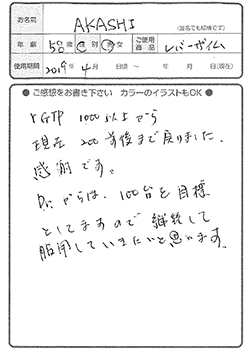 お名前
AKASHI
(匿名でも結構です)
年齢 58歳 性別 男 女 ご使用商品 レバーザイム
使用期間 2019年 4月 日頃 ～ 年 月 日(現在)
●ご感想をお書き下さい カラーのイラストもOK●
γGTP 1000以上から
現在 200前後まで戻りました。
感謝です。
これからは、100台を目標
としてますので継続して
服用していきたいと思います。